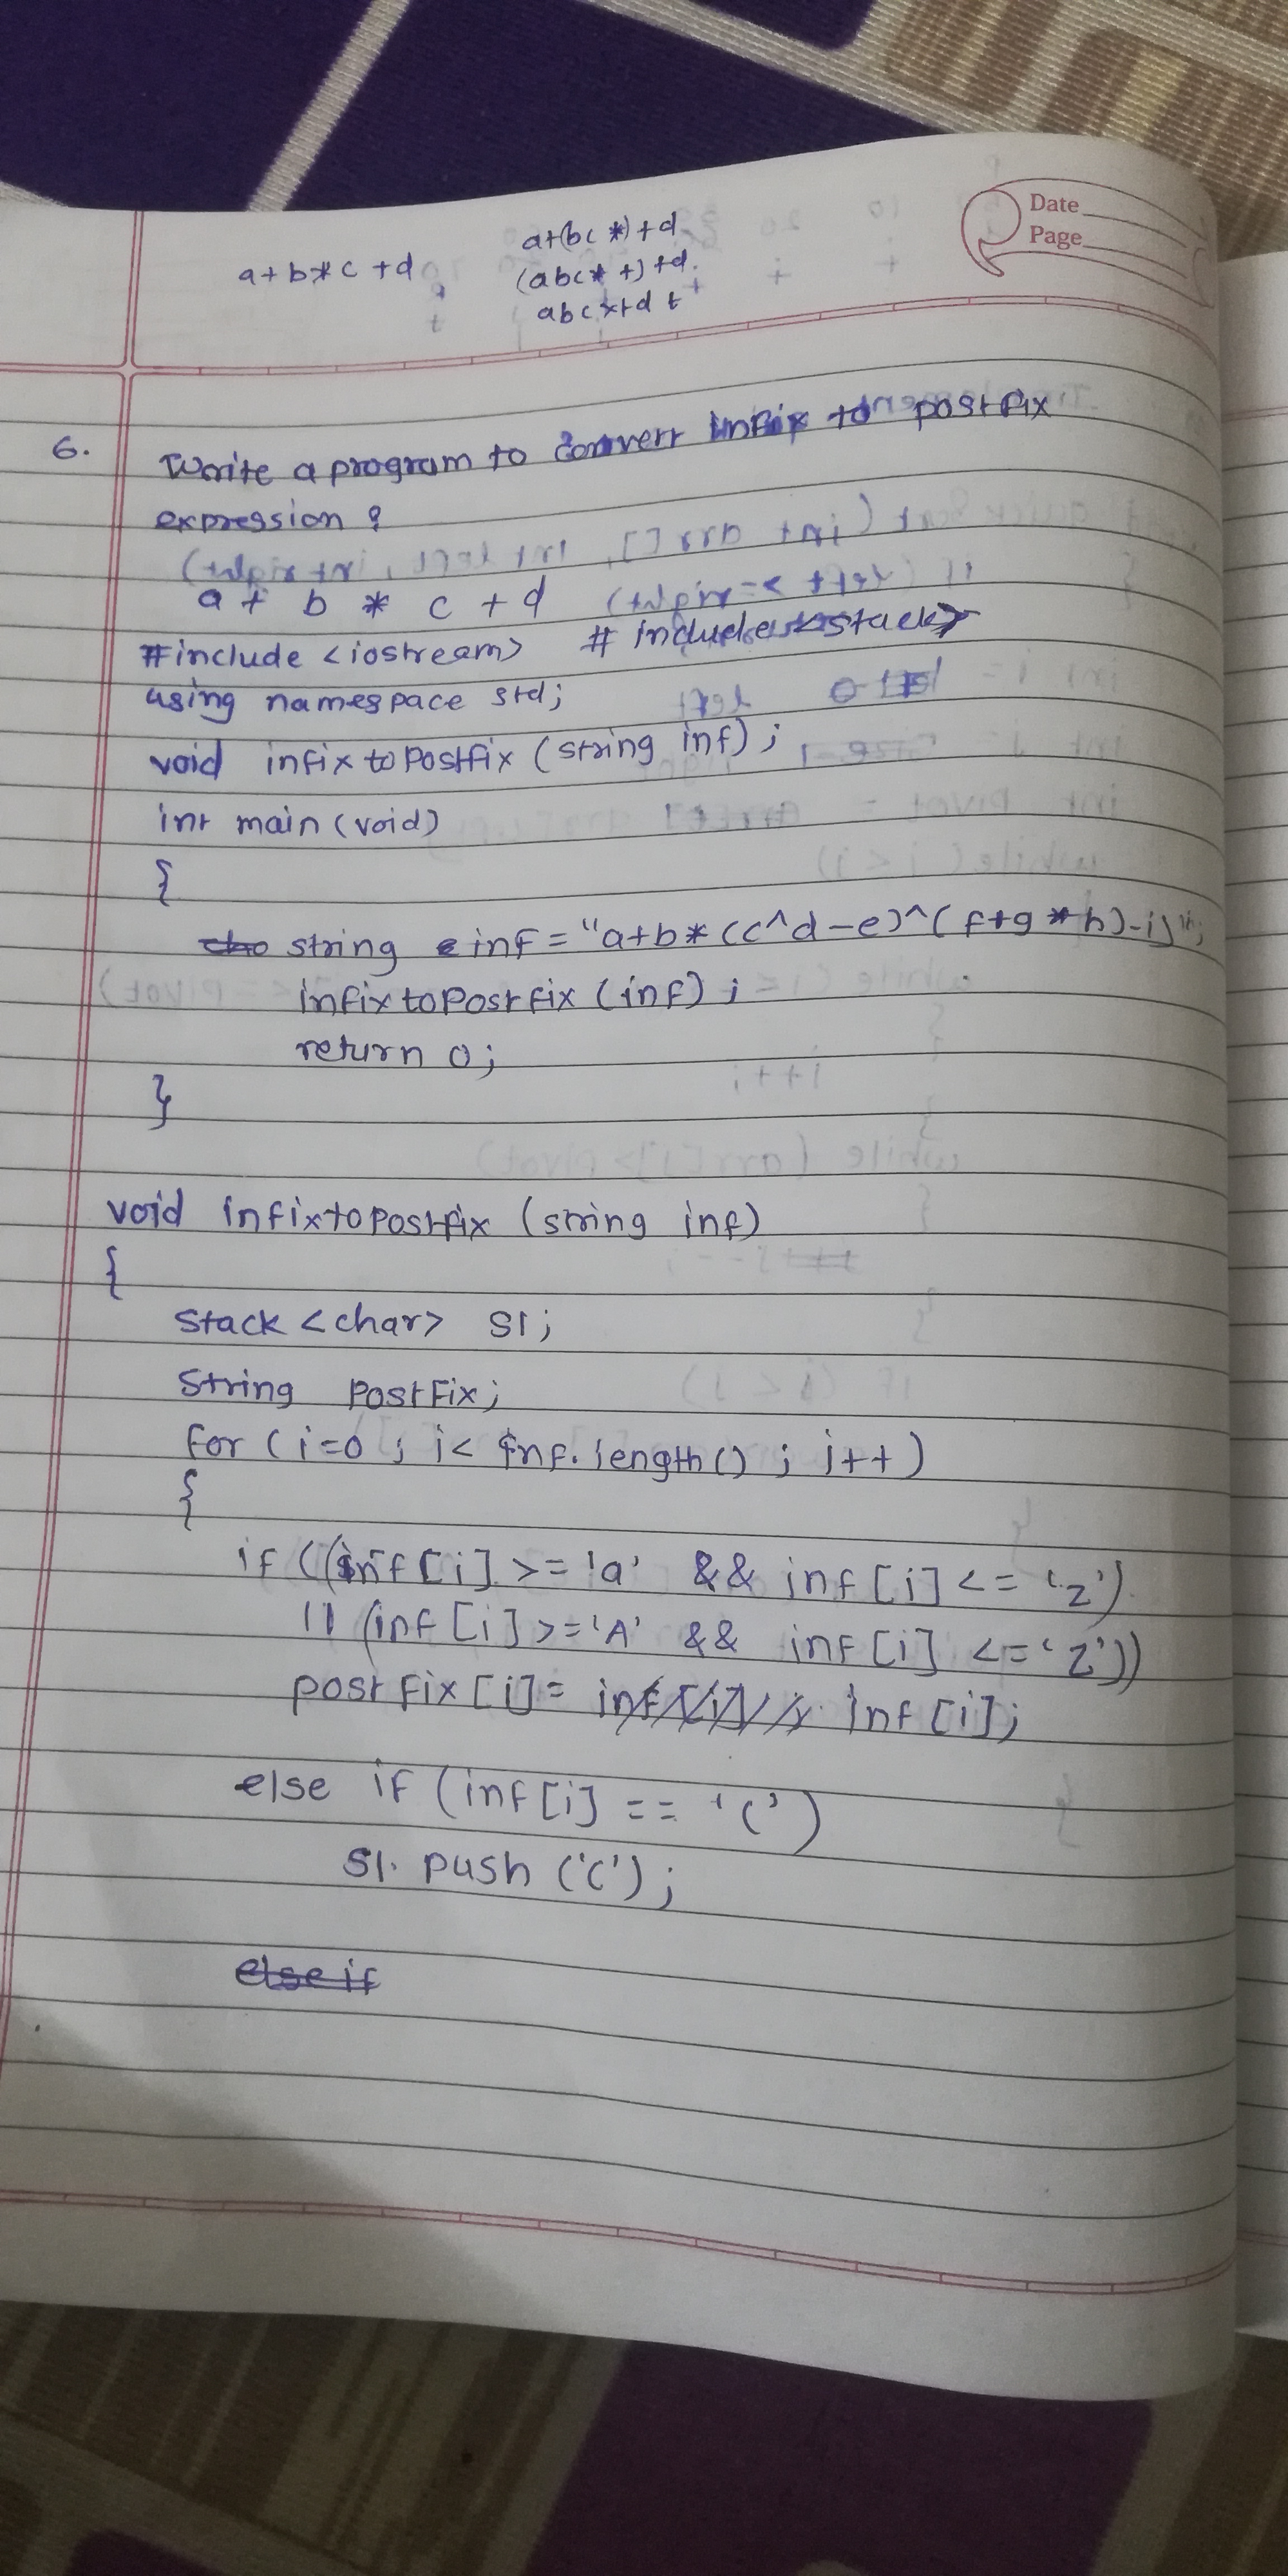 Date
Page
a+b*c+d
a+(bc*)+d
(abc*+)+d
abc*+d+
6. Write a program to convert infix to postfix
expression?
a + b * c + d
#include <iostream> #include <stack>
using namespace std;
void infixtopostfix (string inf);
int main (void)
{
string inf = "a+b*(c^d-e)^(f+g*h)-i)";
infixtopostfix (inf);
return 0;
}
void infixtopostfix (string inf)
{
stack <char> s1;
string postfix;
for (i=0; i< inf.length(); i++)
{
if ((inf[i] >= 'a' && inf[i] <= 'z')
|| (inf[i] >= 'A' && inf[i] <= 'Z'))
postfix[i] = inf[i]; inf[i];
else if (inf[i] == '(')
s1.push ('(');
else if